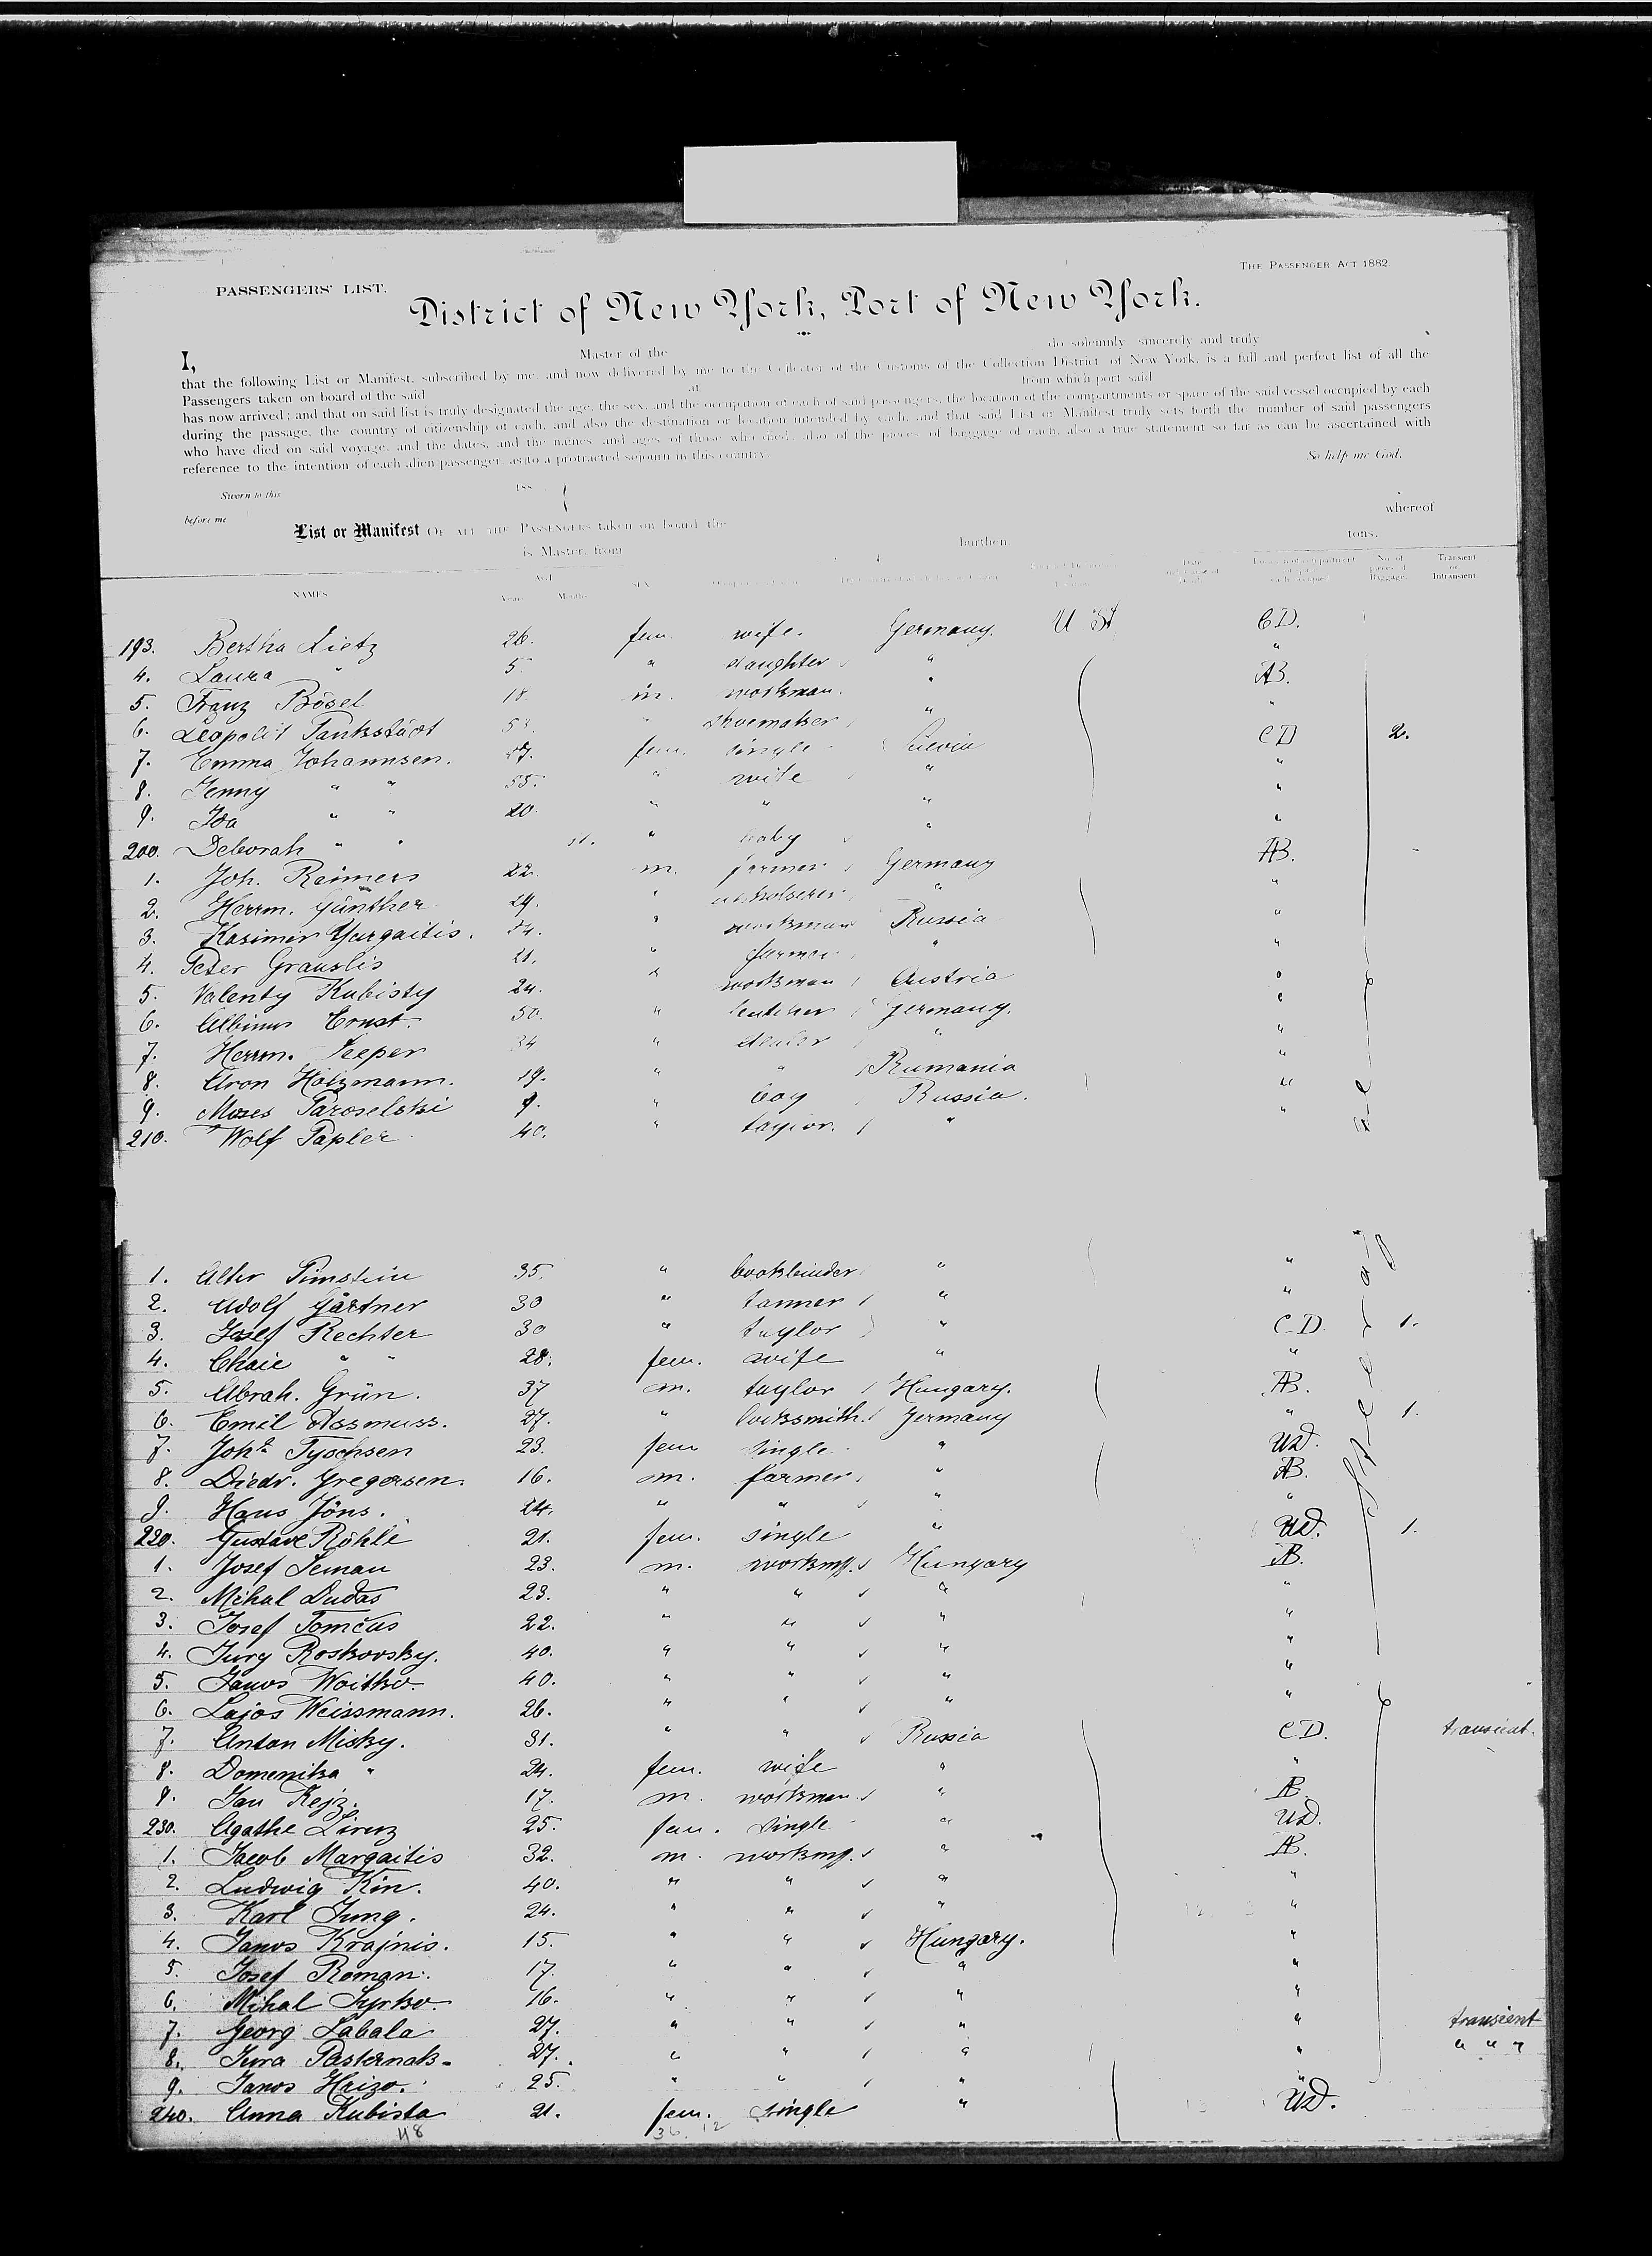 THE PASSENGER ACT 1882.
PASSENGERS' LIST.
District of New York, Port of New York.
I, Master of the do solemnly sincerely and truly
that the following List or Manifest, subscribed by me, and now delivered by me to the Collector of the Customs of the Collection District of New York, is a full and perfect list of all the
Passengers taken on board of the said at from which port said
has now arrived; and that on said list is truly designated the age, the sex, and the occupation of each of said passengers, the location of the compartments or space of the said vessel occupied by each
during the passage, the country of citizenship of each, and also the destination or location intended by each, and that said List or Manifest truly sets forth the number of said passengers
who have died on said voyage, and the dates, and the names and ages of those who died, also of the pieces of baggage of each, also a true statement so far as can be ascertained with
reference to the intention of each alien passenger, as to a protracted sojourn in this country.
So help me God.
Sworn to this 188
before me
whereof
List or Manifest OF ALL THE PASSENGERS taken on board the
is Master, from burthen tons.
NAMES AGE Years Months SEX No. of pieces of Baggage. Transient or Intransient
193. Bertha Lietz 26. fem. wife. Germany. U St. CD.
4. Laura " 5. " daughter " "
5. Franz Bösel 18 m. workman. " AB.
6. Leopold Pankstädt " shoemaker " "
7. Emma Johannsen. fem. single CD 2.
8. Jenny " " 55. " wife " "
9. Ida " " 20. " " " "
200. Deborah " " 11. " baby " "
1. Joh. Reimers 22. m. farmer Germany AB.
2. Herrm. Günther 29. " upholsterer " "
3. Kasimir Yurgaitis. " workman Russia "
4. Peter Grauslis 21. " farmer " "
5. Valenty Kubisty 24. " workman Austria "
6. Albinus Ernst. 50. " butcher Germany. "
7. Herrm. Peeper 34 " dealer " "
8. Aron Holzmann. 19. " " Rumania "
9. Moses Paroselski 9. " boy Russia. "
210. Wolf Papler 40. " taylor. " "
1. Alter Pimstein 35. " bookbinder " "
2. Adolf Gärtner 30 " tanner " "
3. Josef Rechter 30 " taylor " CD. 1.
4. Chaie " " 28. fem. wife " "
5. Abrah. Grün. 37 m. taylor Hungary. AB.
6. Emil Assmuss. 27. " locksmith. Germany " 1.
7. Joh. Tyochsen 23. fem single " UD.
8. Diedr. Gregersen. 16. m. farmer " AB.
9. Hans Jöns. 24. " " " "
220. Gustave Röhle 21. fem. single " UD. 1.
1. Josef Seman 23. m. workmg. Hungary AB.
2. Mihal Dudas 23. " " " "
3. Josef Tomčus 22. " " " "
4. Jurg Roskovsky. 40. " " " "
5. Janos Woitko. 40. " " " "
6. Lajos Weissmann. 26. " " " "
7. Anton Misky. 31. " " Russia CD. transient.
8. Domenika " 24. fem. wife " "
9. Jan Rejz. 17. m. workman " AB.
230. Agathe Lirenz 25. fem. single " UD.
1. Jacob Margaitis 32. m. workmg. " AB.
2. Ludwig Kin. 40. " " " "
3. Karl Jung. 24. " " " "
4. Janos Krajnis. 15. " " Hungary. "
5. Josef Roman. 17. " " " "
6. Mihal Syrko. 16. " " " "
7. Georg Labala 27. " " " " transient
8. Jura Pasternak 27. " " " " " " "
9. Janos Hrizo. 25. " " " "
240. Anna Kubista 21. fem. single " UD.
Steerage
48 36. 12